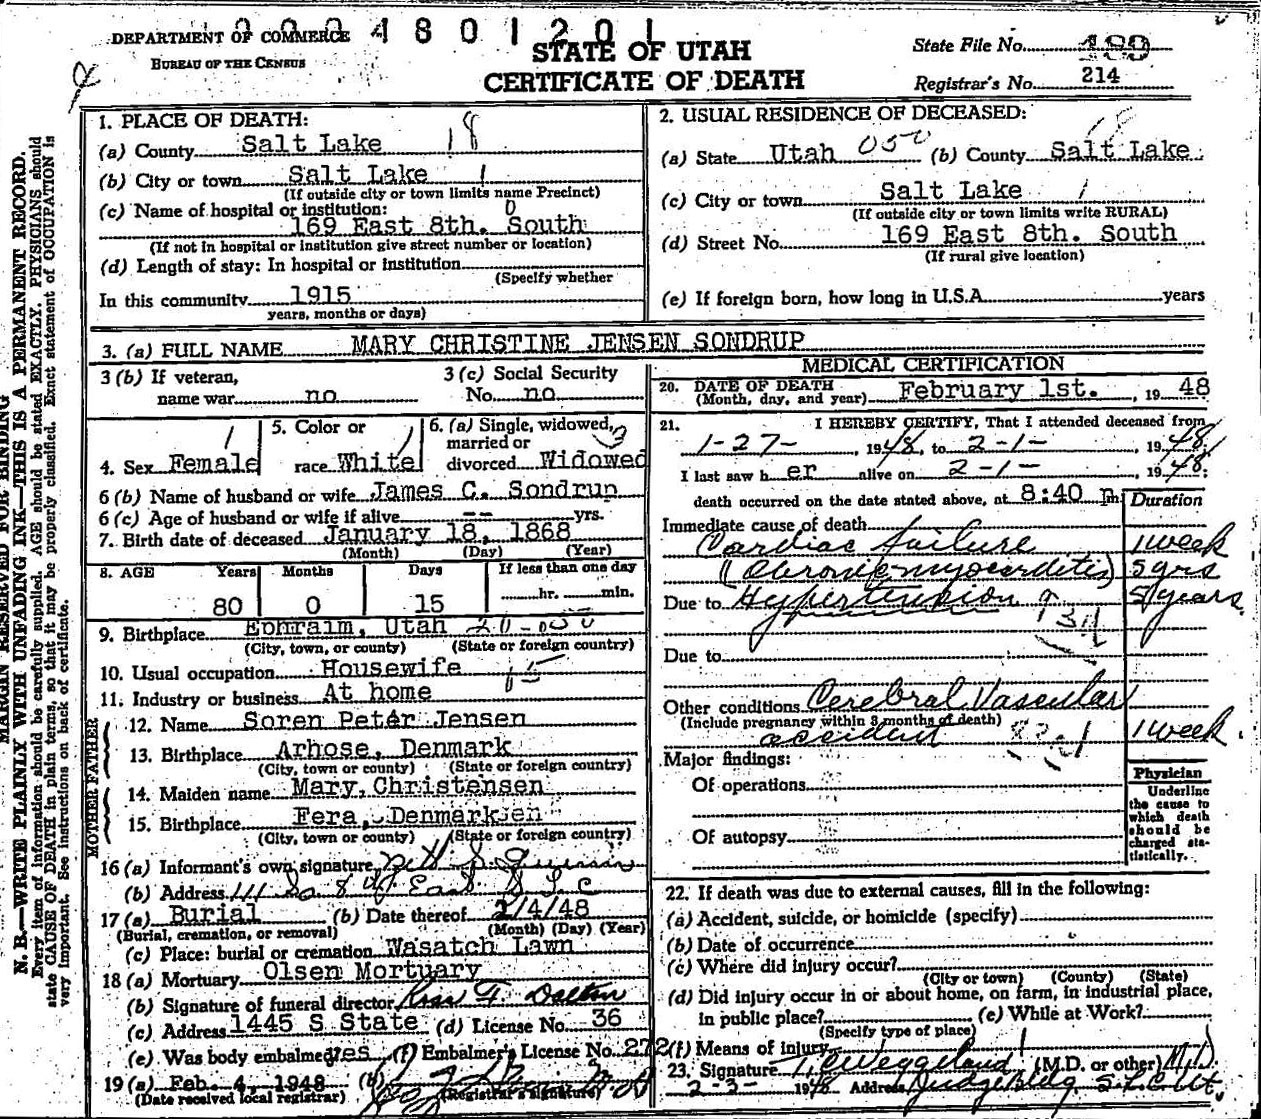 0004801201
DEPARTMENT OF COMMERCE
BUREAU OF THE CENSUS
STATE OF UTAH
CERTIFICATE OF DEATH
State File No. 189
Registrar's No. 214
MARGIN RESERVED FOR BINDING
N. B.—WRITE PLAINLY WITH UNFADING INK—THIS IS A PERMANENT RECORD.
Every item of information should be carefully supplied. AGE should be stated EXACTLY. PHYSICIANS should
state CAUSE OF DEATH in plain terms, so that it may be properly classified. Exact statement of OCCUPATION is
very important. See instructions on back of certificate.
1. PLACE OF DEATH: 18
(a) County Salt Lake
(b) City or town Salt Lake 1
(If outside city or town limits name Precinct)
(c) Name of hospital or institution: 0
169 East 8th. South
(If not in hospital or institution give street number or location)
(d) Length of stay: In hospital or institution
(Specify whether
In this community 1915
years, months or days)
2. USUAL RESIDENCE OF DECEASED:
(a) State Utah 050 (b) County Salt Lake 18
(c) City or town Salt Lake 1
(If outside city or town limits write RURAL)
(d) Street No. 169 East 8th. South
(If rural give location)
(e) If foreign born, how long in U.S.A. years
3. (a) FULL NAME MARY CHRISTINE JENSEN SONDRUP
3 (b) If veteran, name war no
3 (c) Social Security No. no
4. Sex Female 1
5. Color or race White 1
6. (a) Single, widowed, married or divorced Widowed 3
6 (b) Name of husband or wife James C. Sondrup
6 (c) Age of husband or wife if alive -- yrs.
7. Birth date of deceased January 18, 1868
(Month) (Day) (Year)
8. AGE Years Months Days If less than one day
80 0 15 hr. min.
9. Birthplace Ephraim, Utah 20-050
(City, town, or county) (State or foreign country)
10. Usual occupation Housewife
11. Industry or business At home
FATHER
12. Name Soren Peter Jensen
13. Birthplace Arhose, Denmark
(City, town or county) (State or foreign country)
MOTHER
14. Maiden name Mary, Christensen
15. Birthplace Fera, Denmark
(City, town or county) (State or foreign country)
16 (a) Informant's own signature
(b) Address
17 (a) Burial (b) Date thereof 2/4/48
(Burial, cremation, or removal) (Month) (Day) (Year)
(c) Place: burial or cremation Wasatch Lawn
18 (a) Mortuary Olsen Mortuary
(b) Signature of funeral director
(c) Address 1445 S State (d) License No. 36
(e) Was body embalmed yes (f) Embalmer's License No. 272
19 (a) Feb. 4, 1948 (b)
(Date received local registrar) (Registrar's signature)
MEDICAL CERTIFICATION
20. DATE OF DEATH February 1st., 1948
(Month, day, and year)
21. I HEREBY CERTIFY, That I attended deceased from
1-27-, 1948, to 2-1-, 1948,
I last saw her alive on 2-1-, 1948;
death occurred on the date stated above, at 8:40 pm.
Duration
Immediate cause of death
Cardiac failure 1 week
(Chronic myocarditis) 5 yrs
Due to Hypertension 5 years
Due to
Other conditions Cerebral Vascular
(Include pregnancy within 3 months of death)
accident 1 week.
Major findings:
Of operations
Of autopsy
Physician
Underline the cause to which death should be charged statistically.
22. If death was due to external causes, fill in the following:
(a) Accident, suicide, or homicide (specify)
(b) Date of occurrence
(c) Where did injury occur?
(City or town) (County) (State)
(d) Did injury occur in or about home, on farm, in industrial place,
in public place? (e) While at Work?
(Specify type of place)
(f) Means of injury
23. Signature Weggeland (M.D. or other) M.D.
2-3- 1948 Address Judge Bldg S.L.C. Ut